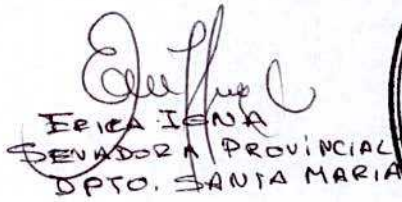 ERICA IGNA
SENADORA PROVINCIAL
DPTO. SANTA MARIA